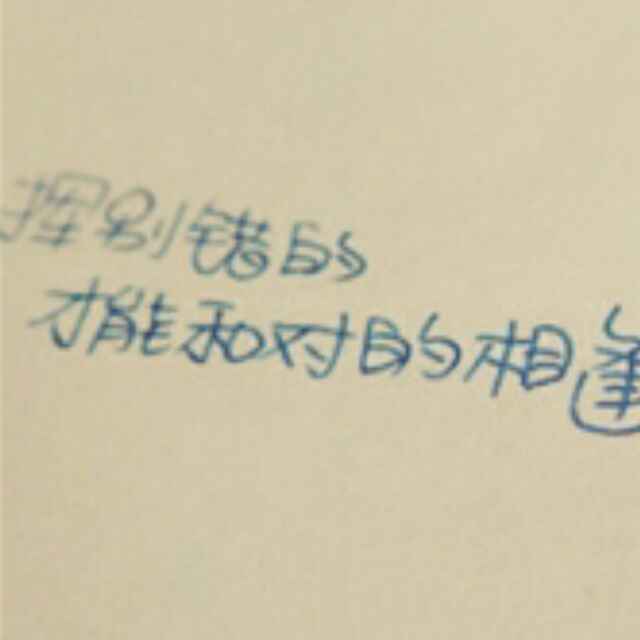 挥别错的
才能和对的相逢